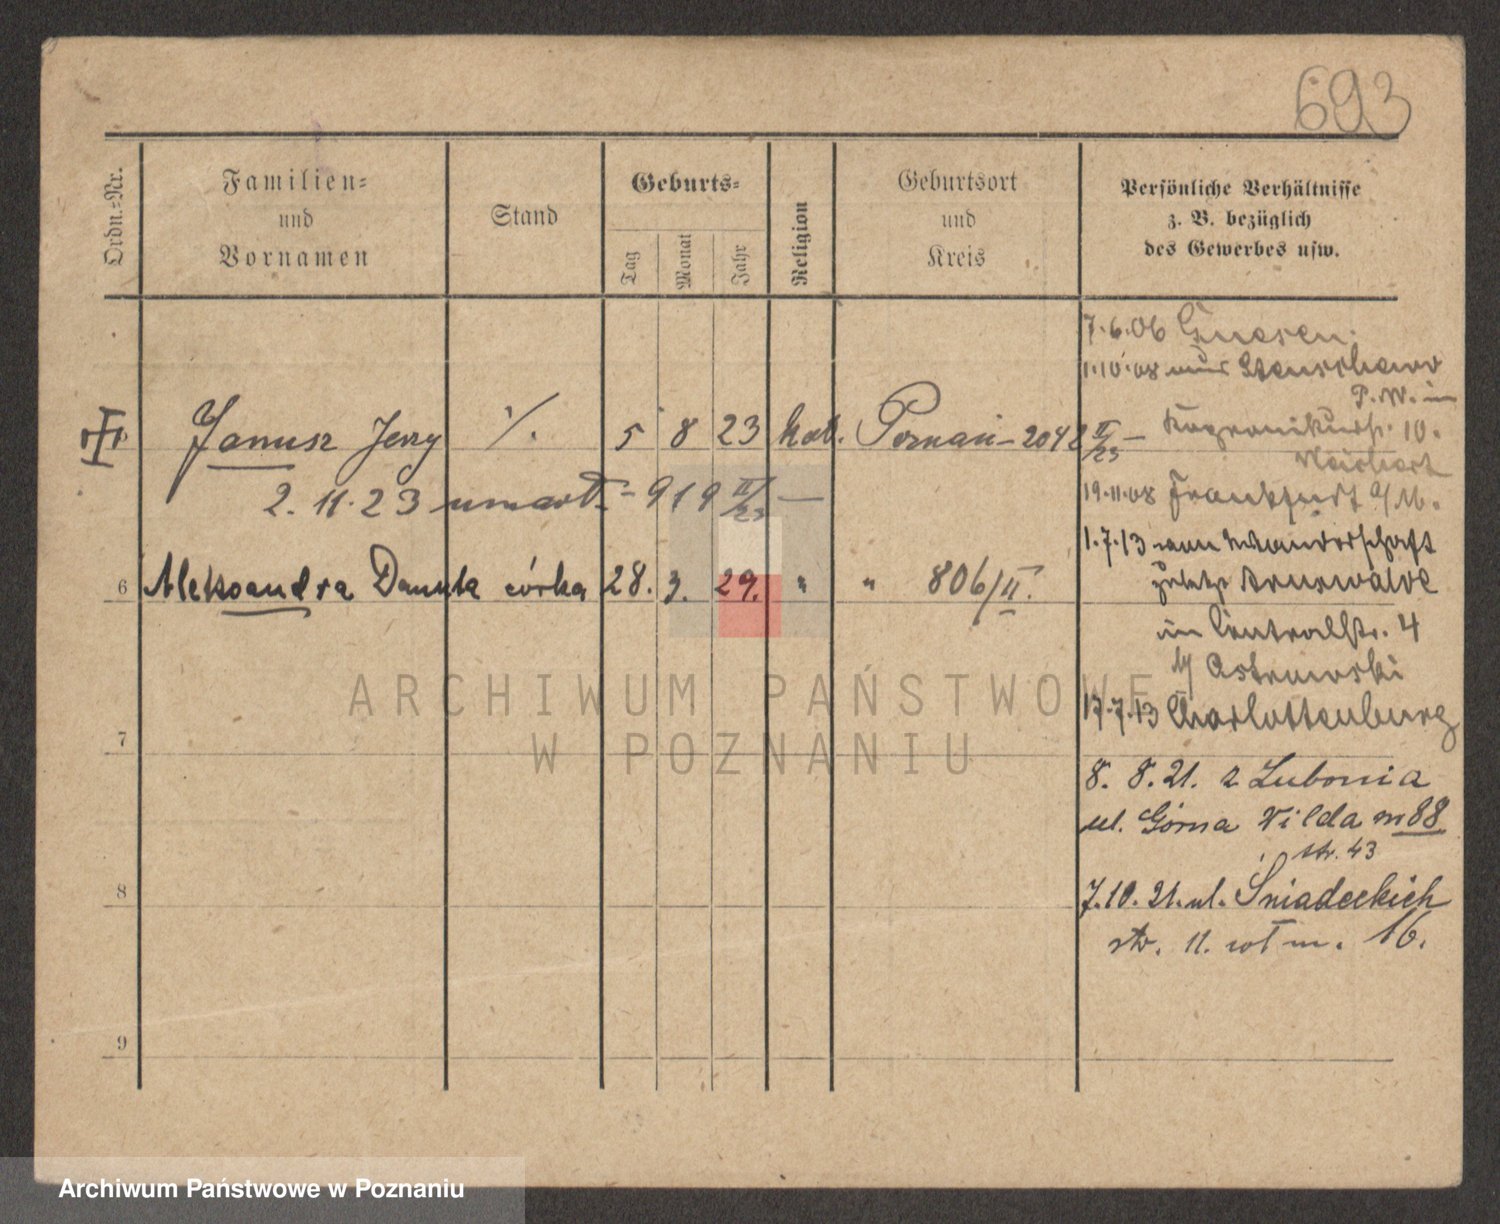 693
Ordn.-Nr.
Familien-
und
Vornamen
Stand
Geburts-
Tag
Monat
Jahr
Religion
Geburtsort
und
Kreis
Persönliche Verhältnisse
z. B. bezüglich
des Gewerbes usw.
7.6.06 Gnesen.
1.10.08
P.W. in
10.
Janusz Jerzy ·/. 5 8 23 kat. Poznań - 2042 II/23 -
2.11.23 umarł - 919 II/23 -
19.11.08 Frankfurt a/M.
1.7.13 von Wanderschaft
zuletzt Arnswalde
6 Aleksandra Danuta córka 28. 3. 29. " " 806/II.
in Centralstr. 4
b/ Ostrowski
17.7.13 Charlottenburg
7
8. 8. 21. z Lubonia
ul. Górna Wilda nr 88
str. 43
8
7.10.21. ul. Śniadeckich
str. 11. wł m. 16.
9
ARCHIWUM PAŃSTWOWE
W POZNANIU
Archiwum Państwowe w Poznaniu